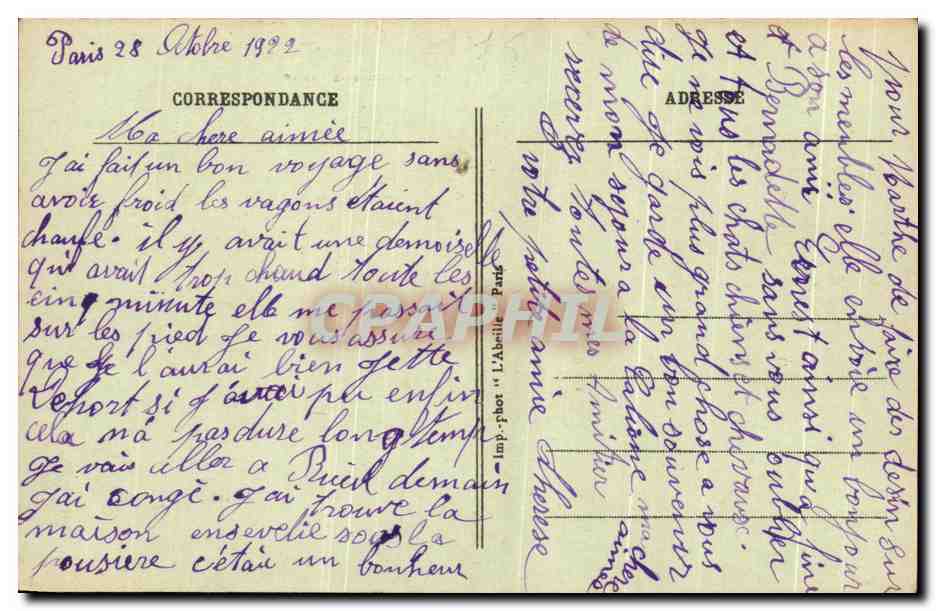 Paris 28 Octobre 1922
CORRESPONDANCE
Ma chere aimée
J'ai fait un bon voyage sans
avoir froid les vagons etaient
chaufé. il y avait une demoiselle
qui avait trop chaud toute les
cinq minute elle me passait
sur les pied je vous assure
que je l'aurai bien jette
dehort si j'avai pu enfin
cela n'a pas dure longtemp
Je vais aller a Rueil demain
J'ai congé. J'ai trouve la
maison ensevelie sous la
pousiere c'était un bonheur
Imp.-phot "L'Abeille" Paris
ADRESSE
pour Marthe de faire des desin sur
les meubles elle envoie un bonjour
a son ami Ernest ainsi qu'a
et Bernadette sans vous oublier
et tous les chats chiens et chevaux.
Je ne vois plus grand chose a vous
dire je garde un bon souvenir
de mon sejour a la ma chere
aimée
recevez toutes mes Amitier
votre petite amie Therese
CPARPHIL